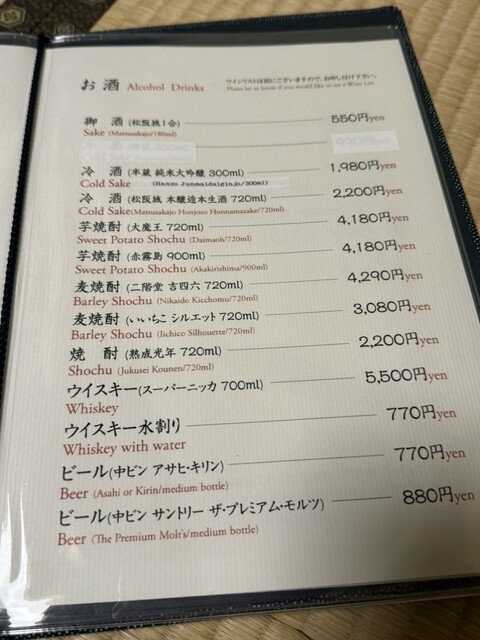 お酒 Alcohol Drinks
ワインリストは別にございますので、お申し付け下さい。
Please let us know if you would like to see a Wine List.
御 酒 (松阪城1合) 550円yen
Sake (Matsusakajo/180ml)
冷 酒 (半蔵 純米大吟醸 300ml) 1,980円yen
Cold Sake (Hanzo Junmaidaiginjo/300ml)
冷 酒 (松阪城 本醸造本生酒 720ml) 2,200円yen
Cold Sake(Matsusakajo Honjozo Honnamazake/720ml)
芋焼酎 (大魔王 720ml) 4,180円yen
Sweet Potato Shochu (Daimaoh/720ml)
芋焼酎 (赤霧島 900ml) 4,180円yen
Sweet Potato Shochu (Akakirishima/900ml)
麦焼酎 (二階堂 吉四六 720ml) 4,290円yen
Barley Shochu (Nikaido Kicchomu/720ml)
麦焼酎 (いいちこ シルエット 720ml) 3,080円yen
Barley Shochu (Iichico Silhouette/720ml)
焼 酎 (熟成光年 720ml) 2,200円yen
Shochu (Jukusei Kounen/720ml)
ウイスキー(スーパーニッカ 700ml) 5,500円yen
Whiskey
ウイスキー水割り 770円yen
Whiskey with water
ビール(中ビン アサヒ・キリン) 770円yen
Beer (Asahi or Kirin/medium bottle)
ビール(中ビン サントリー ザ・プレミアム・モルツ) 880円yen
Beer (The Premium Molt's/medium bottle)